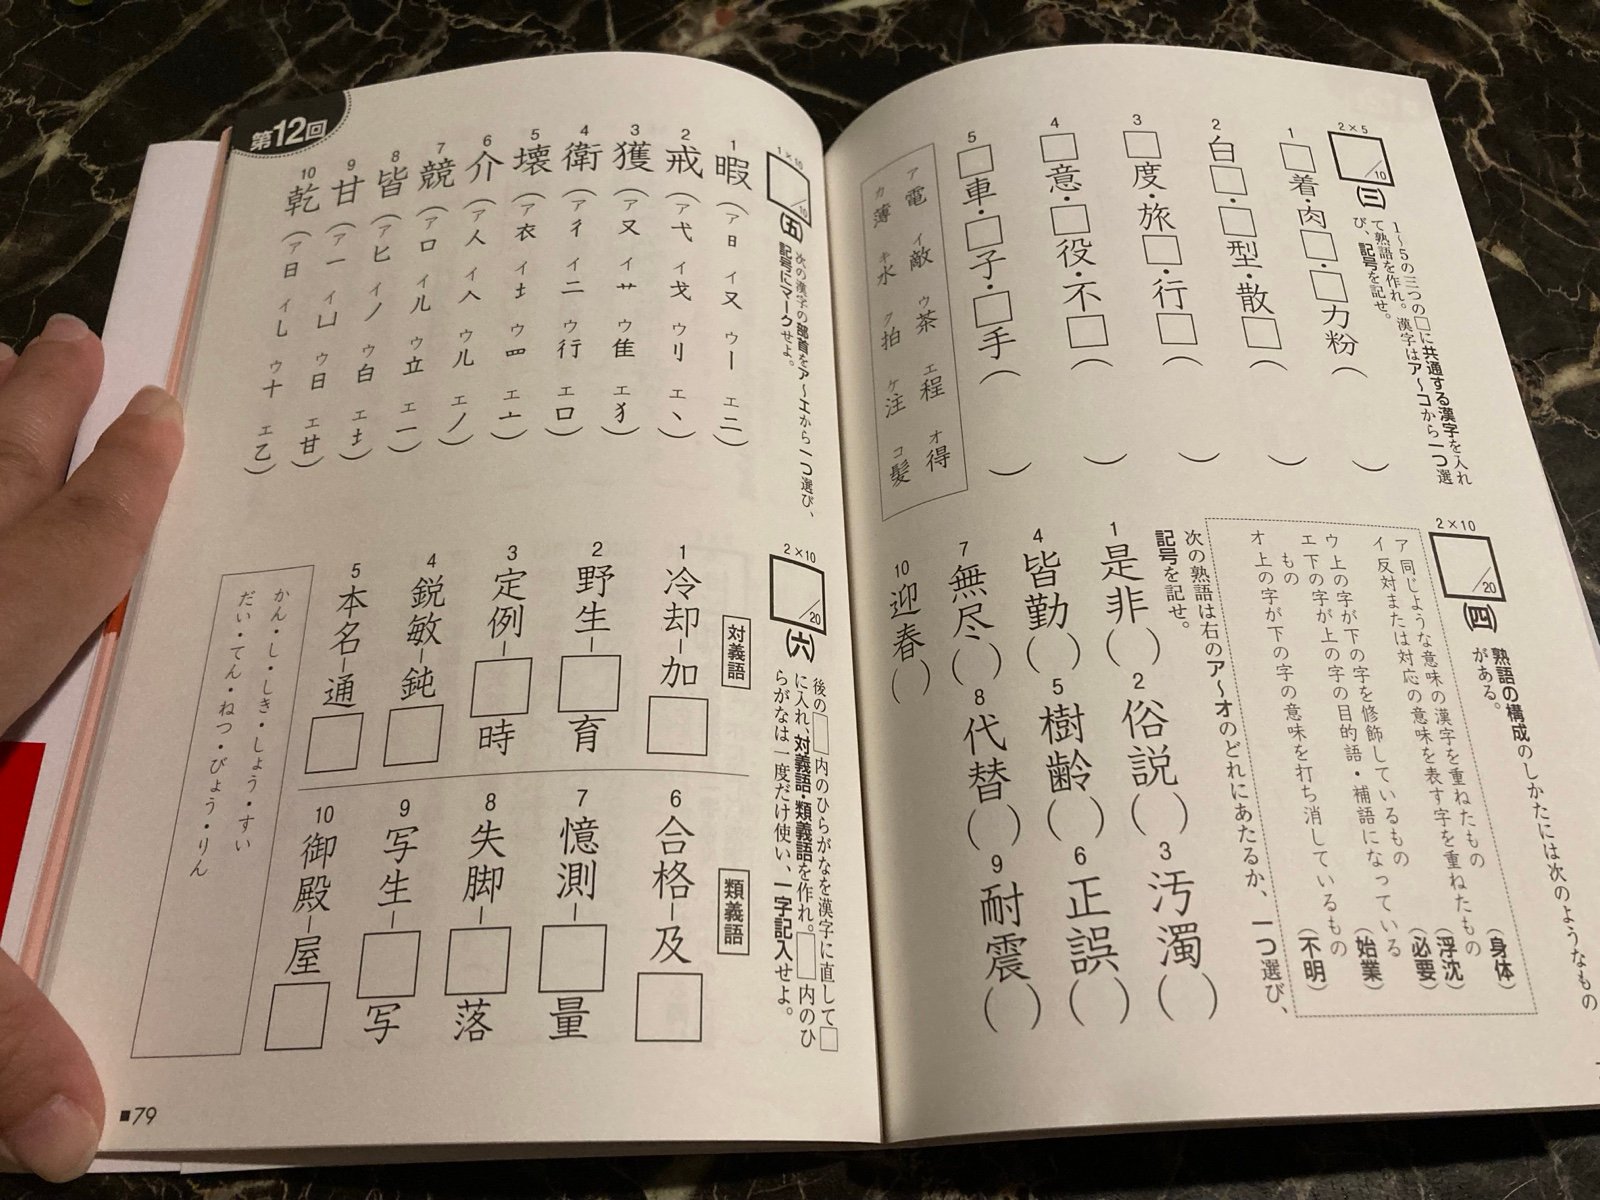 2×5
/10
(三)
1～5の三つの□に共通する漢字を入れ
て熟語を作れ。漢字はア～コから一つ選
び、記号を記せ。
1 □着・肉□・□力粉（　）
2 白□・□型・散□（　）
3 □度・旅□・行□（　）
4 □意・□役・不□（　）
5 □車・□子・□手（　）
ア電 イ敵 ウ茶 エ程 オ得
カ薄 キ水 ク拍 ケ注 コ髪
2×10
/20
(四)
熟語の構成のしかたには次のようなもの
がある。
ア 同じような意味の漢字を重ねたもの（身体）
イ 反対または対応の意味を表す字を重ねたもの（浮沈）
ウ 上の字が下の字を修飾しているもの（必要）
エ 下の字が上の字の目的語・補語になっている
もの（始業）
オ 上の字が下の字の意味を打ち消しているもの（不明）
次の熟語は右のア～オのどれにあたるか、一つ選び、
記号を記せ。
1 是非（　）
2 俗説（　）
3 汚濁（　）
4 皆勤（　）
5 樹齢（　）
6 正誤（　）
7 無尽（　）
8 代替（　）
9 耐震（　）
10 迎春（　）
第12回
1×10
/10
(五)
次の漢字の部首をア～エから一つ選び、
記号にマークせよ。
1 暇（ア日 イ又 ウ｜ エ二）
2 戒（ア弋 イ戈 ウ刂 エ丶）
3 獲（ア又 イ艹 ウ隹 エ犭）
4 衛（ア彳 イ二 ウ行 エ口）
5 壊（ア衣 イ土 ウ罒 エ亠）
6 介（ア人 イ𠆢 ウ儿 エノ）
7 競（ア口 イ儿 ウ立 エ一）
8 皆（ア匕 イノ ウ白 エ土）
9 甘（ア一 イ凵 ウ日 エ甘）
10 乾（ア日 イ乚 ウ十 エ乙）
2×10
/20
(六)
後の□内のひらがなを漢字に直して□
に入れ、対義語・類義語を作れ。□内のひ
らがなは一度だけ使い、一字記入せよ。
対義語
1 冷却－加□
2 野生－□育
3 定例－□時
4 鋭敏－鈍□
5 本名－通□
類義語
6 合格－及□
7 憶測－□量
8 失脚－□落
9 写生－□写
10 御殿－屋□
かん・し・しき・しょう・すい
だい・てん・ねつ・びょう・りん
■79